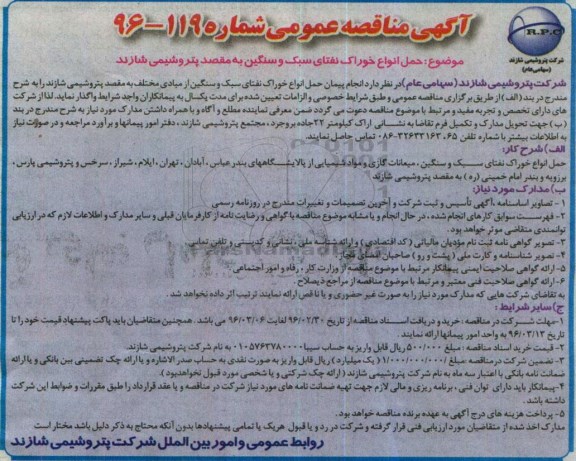 آگهی مناقصه عمومی شماره ۱۱۹-۹۶
R.P.C
شرکت پتروشیمی شازند
(سهامی عام)
موضوع: حمل انواع خوراک نفتای سبک و سنگین به مقصد پتروشیمی شازند
شرکت پتروشیمی شازند (سهامی عام) در نظر دارد انجام پیمان حمل انواع خوراک نفتای سبک و سنگین از مبادی مختلف به مقصد پتروشیمی شازند را به شرح
مندرج در بند (الف) از طریق برگزاری مناقصه عمومی و طبق شرایط خصوصی و الزامات تعیین شده برای مدت یکسال به پیمانکاران واجد شرایط واگذار نماید. لذا از شرکت
های دارای تخصص و تجربه مفید و مرتبط با موضوع مناقصه دعوت می گردد ضمن معرفی نماینده مطلع و آگاه و با همراه داشتن مدارک مورد نیاز به شرح مندرج در بند
(ب) جهت تحویل مدارک و تکمیل فرم تقاضا به نشانی: اراک کیلومتر ۲۲ جاده بروجرد، مجتمع پتروشیمی شازند، دفتر امور پیمانها و برآورد مراجعه و در صورت نیاز
به اطلاعات بیشتر با شماره تلفن ۶۵، ۳۲۶۳۳۱۶۳-۰۸۶ تماس حاصل نمایند.
الف) شرح کار:
حمل انواع خوراک نفتای سبک و سنگین، میعانات گازی و مواد شیمیایی از پالایشگاههای بندرعباس، آبادان، تهران، ایلام، شیراز، سرخس و پتروشیمی پارس،
برزویه و بندر امام خمینی (ره) به مقصد پتروشیمی شازند
ب) مدارک مورد نیاز:
۱- تصاویر اساسنامه، آگهی تأسیس و ثبت شرکت و آخرین تصمیمات و تغییرات مندرج در روزنامه رسمی
۲- فهرست سوابق کارهای انجام شده، در حال انجام و یا مشابه موضوع مناقصه با گواهی و رضایت نامه از کارفرمایان قبلی و سایر مدارک و اطلاعات لازم که در ارزیابی
توانمندی متقاضی موثر خواهد بود.
۳- تصویر گواهی نامه ثبت نام مؤدیان مالیاتی (کد اقتصادی) و ارائه شناسه ملی، نشانی و کدپستی و تلفن تماس.
۴- تصویر شناسنامه و کارت ملی (پشت و رو) صاحبان امضای مجاز.
۵- ارائه گواهی صلاحیت ایمنی پیمانکار مرتبط با موضوع مناقصه از وزارت کار، رفاه و امور اجتماعی.
۶- ارائه گواهی صلاحیت فنی معتبر و مرتبط با موضوع مناقصه از مراجع ذیصلاح.
به تقاضای شرکت هایی که مدارک مورد نیاز را به صورت غیر حضوری و یا ناقص ارائه نمایند، ترتیب اثر داده نخواهد شد.
ج) سایر شرایط:
۱- مهلت شرکت در مناقصه: خرید و دریافت اسناد مناقصه از تاریخ ۹۶/۰۲/۳۰ لغایت ۹۶/۰۳/۰۶ می باشد. همچنین متقاضیان باید پاکت پیشنهاد قیمت خود را تا
تاریخ ۹۶/۰۳/۱۳ به واحد امور پیمانها ارائه نمایند.
۲- قیمت خرید اسناد مناقصه: مبلغ ۵۰۰/۰۰۰ ریال قابل واریز به حساب سیبا ۰۱۰۵۷۶۳۷۸۰۰۰۰ به نام شرکت پتروشیمی شازند.
۳- تضمین شرکت در مناقصه: مبلغ ۱/۰۰۰/۰۰۰/۰۰۰ (یک میلیارد) ریال قابل واریز به صورت نقدی به حساب صدر الاشاره و یا ارائه چک تضمینی بین بانکی و یا ارائه
ضمانت نامه بانکی با اعتبار سه ماه به نام شرکت پتروشیمی شازند (ارائه چک شرکتی و یا شخصی مورد قبول نخواهد بود).
۴- پیمانکار باید دارای توان فنی، برنامه ریزی و مالی لازم جهت تهیه ضمانت نامه های مورد نیاز شرکت در مناقصه و یا عقد قرارداد را طبق مقررات و ضوابط این شرکت
داشته باشد.
۵- پرداخت هزینه های درج آگهی به عهده برنده مناقصه خواهد بود.
مدارک اخذ شده از متقاضیان مورد ارزیابی فنی قرار گرفته و شرکت در رد و یا قبول هر یک یا تمامی پیشنهادها بدون آنکه محتاج به ذکر دلیل باشد مختار است
روابط عمومی و امور بین الملل شرکت پتروشیمی شازند